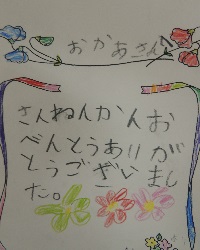 おかあさん
さんねんかんお
べんとうありが
とうございまし
た。